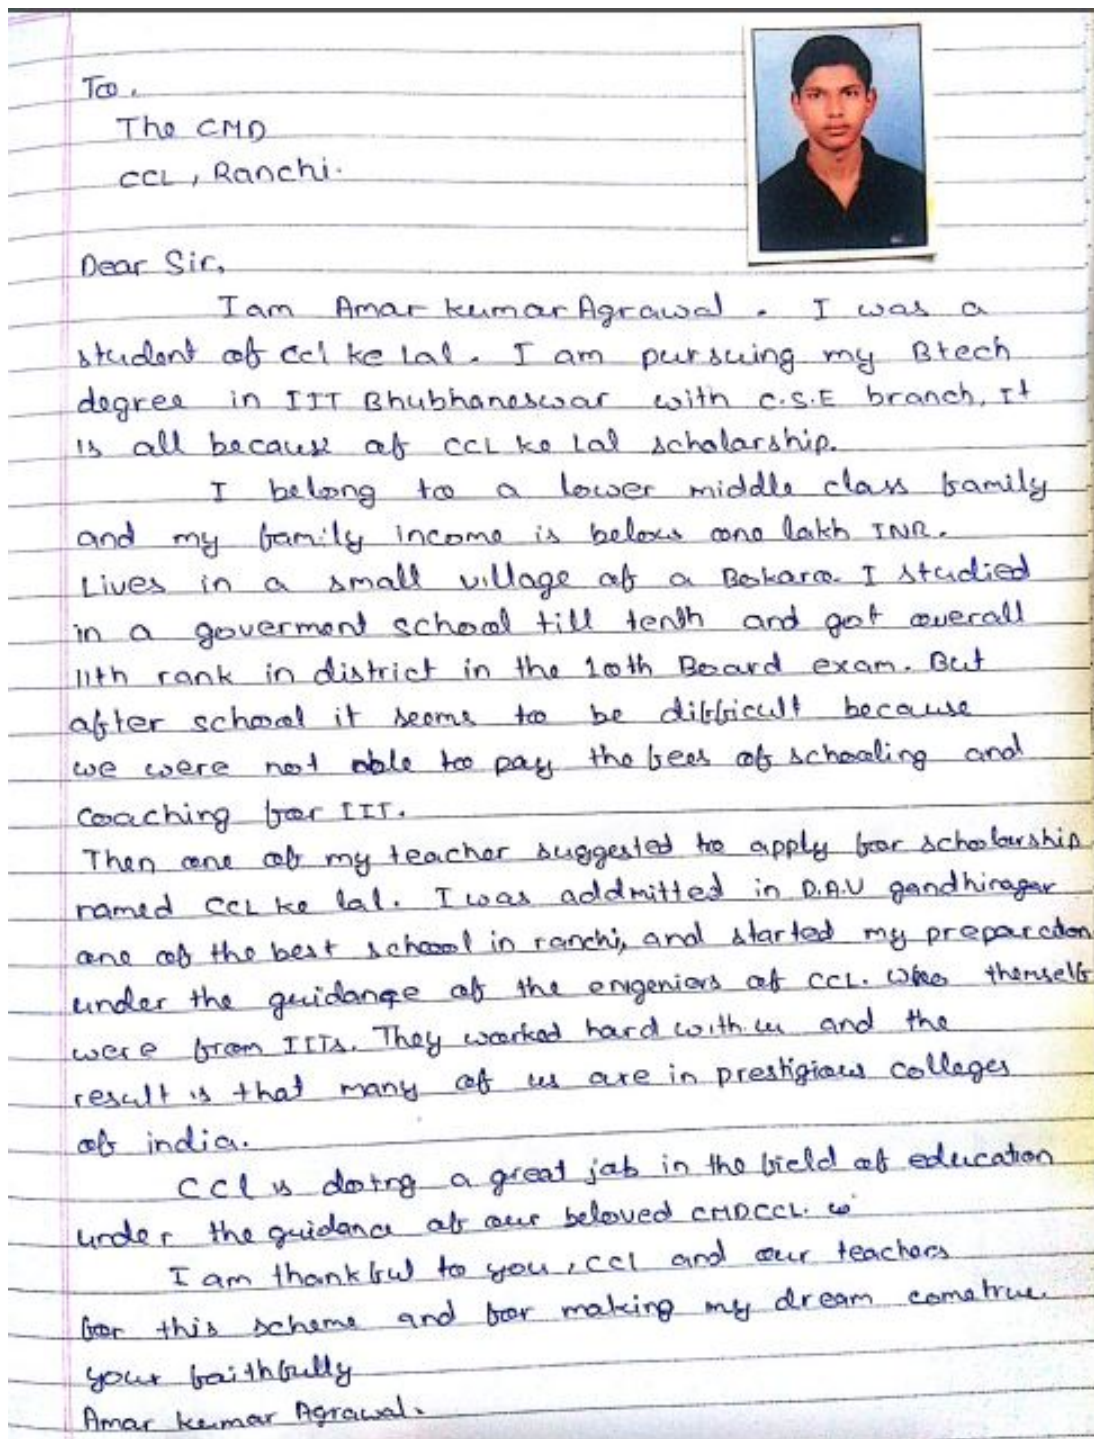 To,
The CMD
CCL, Ranchi.
Dear Sir,
I am Amar kumar Agrawal. I was a
student of ccl ke Lal. I am pursuing my Btech
degree in IIT Bhubhaneswar with C.S.E branch, It
is all because of CCL ke Lal scholarship.
I belong to a lower middle class family
and my family income is below one lakh INR.
Lives in a small village of a Bokaro. I studied
in a goverment school till tenth and got overall
11th rank in district in the 10th Board exam. But
after school it seems to be difficult because
we were not able to pay the fees of schooling and
coaching for IIT.
Then one of my teacher suggested to apply for scholarship
named CCL ke lal. I was addmitted in D.A.V gandhinagar
one of the best school in ranchi, and started my preparation
under the guidance of the engeniers of CCL. who themself
were from IITs. They worked hard with us and the
result is that many of us are in prestigious colleges
of india.
CCl is doing a great job in the field of education
under the guidance of our beloved CMD.CCL.
I am thankful to you, CCl and our teachers
for this scheme and for making my dream come true.
your faithfully
Amar kumar Agrawal.